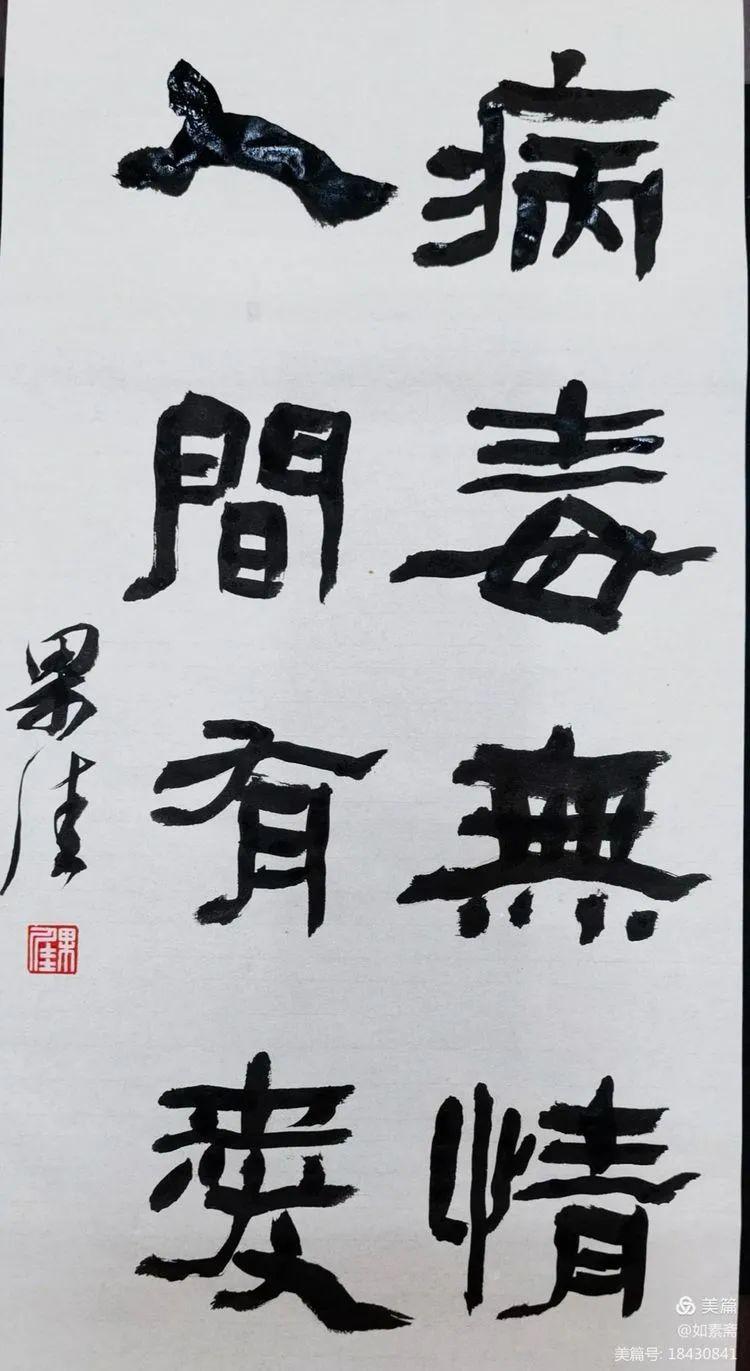 病毒無情
人間有愛
果佳
果佳
美篇
@如素斋
美篇号: 18430841